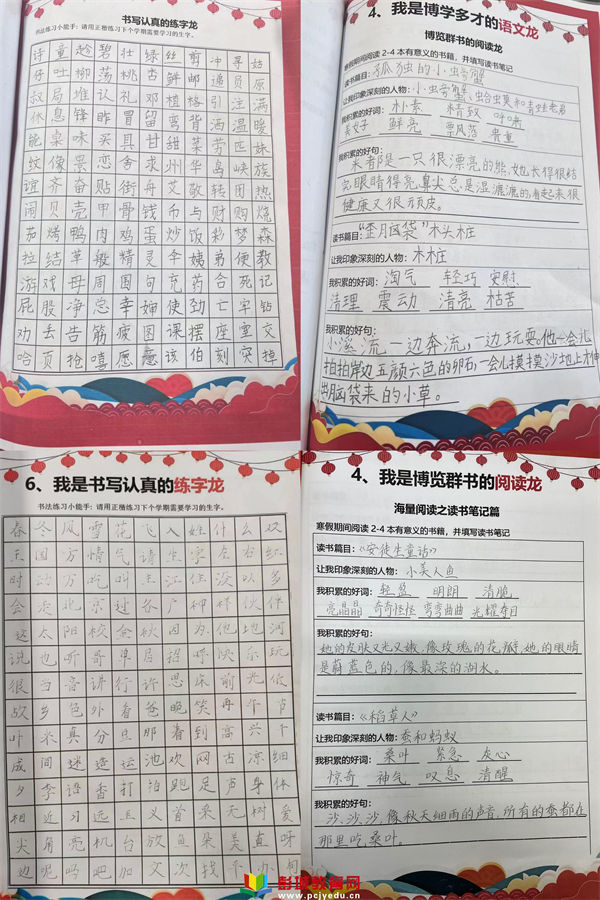 书写认真的练字龙
书法练习小能手：请用正楷练习下个学期需要学习的生字。
诗 童 趁 碧 壮 绿 丝 剪 冲 寻 姑
仔 吐 柳 荡 桃 杏 鲜 邮 递 员 原
叔 局 堆 认 礼 邓 植 格 引 注 满
休 息 锋 昨 冒 留 弯 背 洒 温 暖
能 桌 味 买 具 甘 甜 菜 劳 匹 妹
纹 像 景 恋 舍 求 州 华 岛 峡 族
谊 齐 奋 贴 街 舟 艾 敬 转 团 热
闹 贝 壳 甲 骨 钱 币 与 财 购 烧
茄 烤 鸭 肉 鸡 蛋 炒 饭 彩 梦 森
拉 结 苹 般 精 灵 伞 姨 弟 便 教
游 戏 母 周 围 句 充 药 合 死 记
屁 股 净 忽 幸 婶 使 劲 亡 牢 钻
劝 丢 告 筋 疲 图 课 摆 座 重 文
哈 页 抢 嘻 愿 意 该 伯 刻 突 掉
4、我是博学多才的语文龙
博览群书的阅读龙
寒假期间阅读 2-4 本有意义的书籍，并填写读书笔记
读书篇目：孤独的小螃蟹
让我印象深刻的人物：小螃蟹、蛤蛤莫和青蛙老弟
我积累的好词： 朴素 精致 呼啸
美好 鲜亮 飘风落 贵重
我积累的好句：
来者是一只很漂亮的熊，她长得很结
实，眼睛得亮，鼻尖总是湿漉漉的，看起来很
健康又很顽皮。
读书篇目：“歪脑袋”木头桩
让我印象深刻的人物：木木桩
我积累的好词： 淘气 轻巧 安慰
清理 震动 清亮 枯苦
我积累的好句：
小溪流一边奔流，一边玩耍。他一会儿
拍拍岸边五颜六色的卵石，一会儿摸摸沙地上才伸
出脑袋来的小草。
6、我是书写认真的练字龙
书法练习小能手：请用正楷练习下个学期需要学习的生字。
春 冬 风 雪 花 飞 入 姓 什 么 双
王 国 方 情 气 请 生 字 左 右 红
时 动 万 吃 叫 主 江 住 没 以 多
会 走 北 京 过 各 广 种 样 伙 伴
这 太 阳 校 金 秋 因 为 他 地 河
说 也 听 哥 单 居 招 呼 快 乐 玩
很 当 音 讲 行 许 思 床 前 光 低
故 乡 色 外 看 爸 晚 笑 再 午 节
叶 米 真 分 豆 那 着 到 高 兴 千
成 间 迷 造 运 池 欢 网 古 凉 细
夕 李 语 香 打 拍 跑 足 声 身 体
相 近 习 远 玉 义 首 采 无 树 爱
尖 角 亮 机 台 放 鱼 朵 美 直 呀
边 呢 吗 吧 加 文 次 找 平 办 何
4、我是博览群书的阅读龙
海量阅读之读书笔记篇
寒假期间阅读 2-4 本有意义的书籍，并填写读书笔记
读书篇目：《安徒生童话》
让我印象深刻的人物：小美人鱼
我积累的好词： 轻盈 明朗 清脆
亮晶晶 奇奇怪怪 弯弯曲曲 光耀夺目
我积累的好句：
她的皮肤又光又嫩，像玫瑰的花瓣，她的眼睛
是蔚蓝色的，像最深的湖水。
读书篇目：《稻草人》
让我印象深刻的人物：蚕和蚂蚁
我积累的好词： 桑叶 紧急 灰心
惊奇 神气 叹息 清醒
我积累的好句：
沙，沙，沙，像秋天细雨的声音，所有的蚕都在
那里吃桑叶。
彭璟教育网
www.pcjyedu.cn